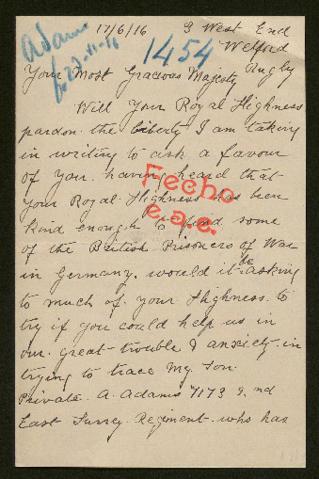 Adams
17/6/16
9 West End
Welford
Rugby
1454
Your Most Gracious Majesty
Will Your Royal Highness
pardon the liberty I am taking
in writing to ask a favour
of you. having heard that
Your Royal Highness has been
kind enough to find some
of the British Prisoners of War
in Germany. would it be asking
to much of your Highness. to
try if you could help us in
our great trouble & anxiety in
trying to trace my Son.
Private. A. Adams 7173 2.nd
East Surrey Regiment. who has
Fecho
e.a.e.